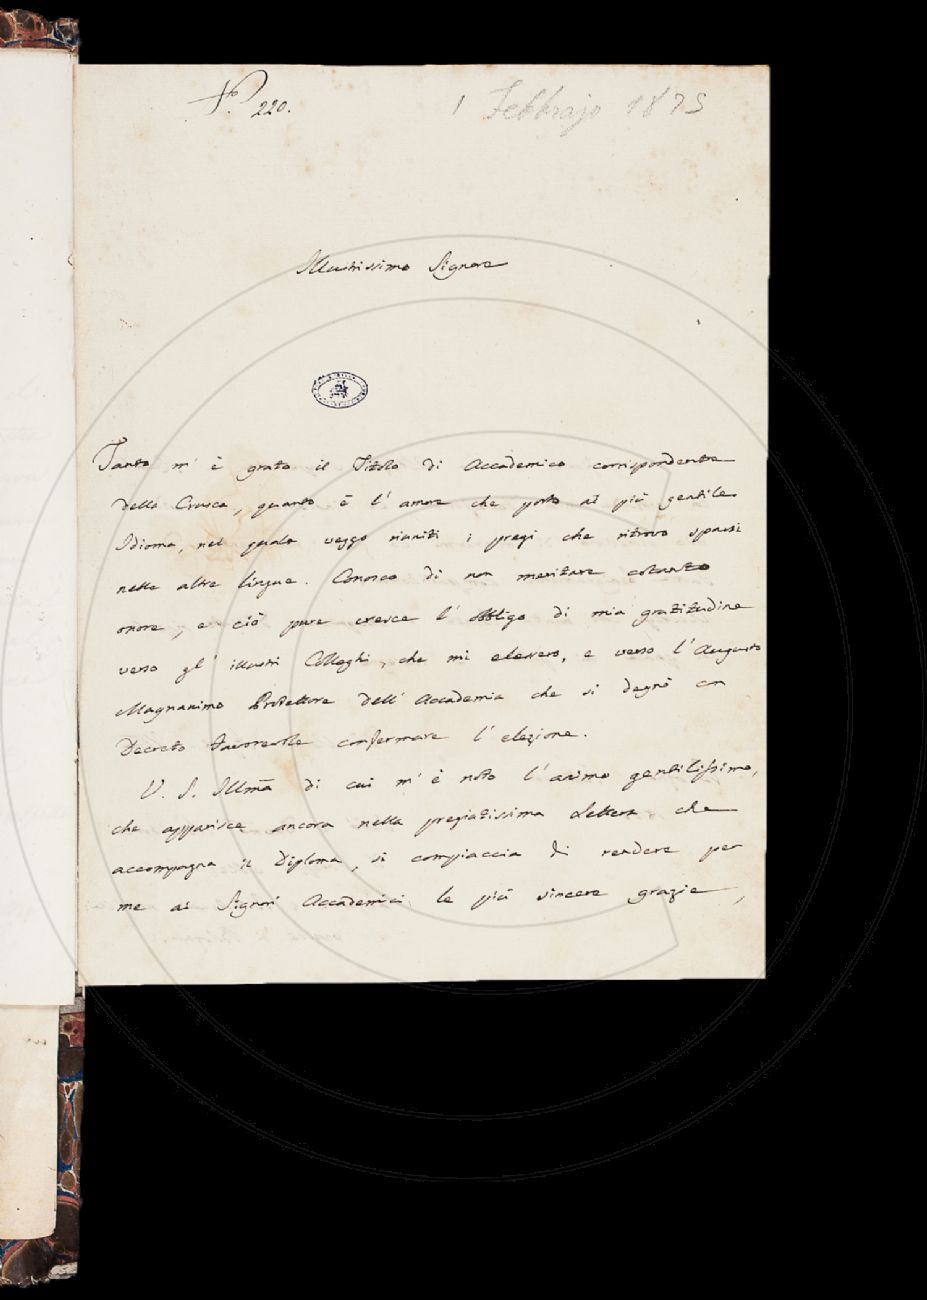 N.º 220.
1 Febbrajo 1875
Illustrissimo Signore
Tanto m' è grato il Titolo di Accademico corrispondente
della Crusca, quanto è l' amore che porto al più gentile
Idioma, nel quale veggo riuniti i pregi che ritrovo sparsi
nelle altre lingue. Conosco di non meritare cotanto
onore, e ciò pure cresce l' obbligo di mia gratitudine
verso gl' illustri Colleghi, che mi elessero, e verso l' Augusto
Magnanimo Protettore dell' Accademia che si degnò con
Decreto favorevole confermare l' elezione.
V. S. Illma di cui m' è noto l' animo gentilissimo,
che apparisce ancora nella pregiatissima Lettera che
accompagna il Diploma, si compiaccia di rendere per
me ai Signori Accademici le più sincere grazie,